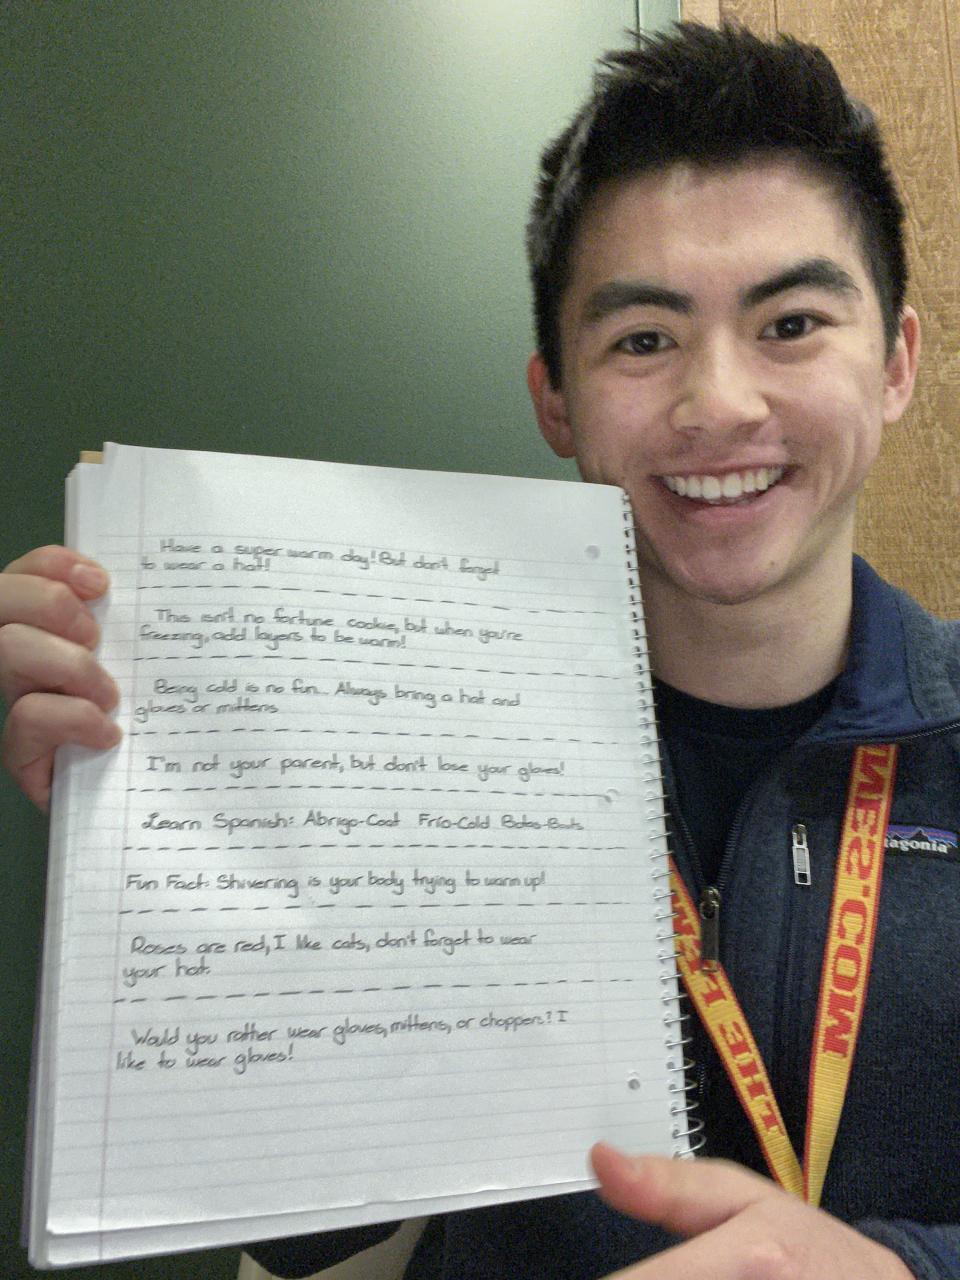 Have a super warm day! But don't forget
to wear a hat!
This isn't no fortune cookie, but when you're
freezing, add layers to be warm!
Being cold is no fun... Always bring a hat and
gloves or mittens
I'm not your parent, but don't lose your gloves!
Learn Spanish: Abrigo-Coat Frío-Cold Botas-Boots
Fun Fact: Shivering is your body trying to warm up!
Roses are red, I like cats, don't forget to wear
your hat.
Would you rather wear gloves, mittens, or choppers? I
like to wear gloves!
patagonia
THE
MES.COM